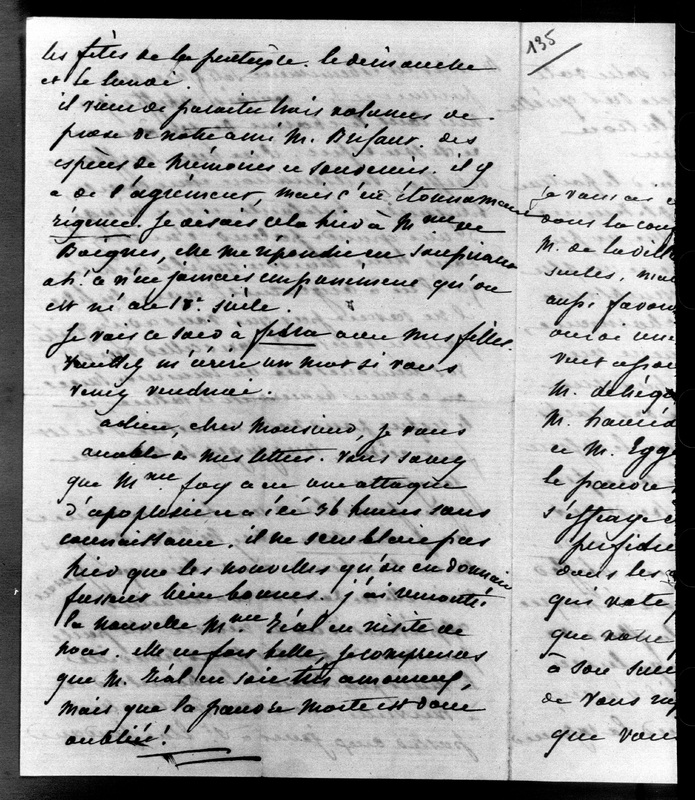 les fêtes de la pentecôte. le dimanche
et le lundi.
il vient de paraitre trois volumes de
prose de notre ami M. Brifaut. des
espèces de mémoires et souvenirs. il y
a de l'agrément, mais c'est étonnament
régence. je disais cela hier à Mme de
Boignes, elle me répondit en soupirant
ah! n'est jamais impunément qu'on
est né au 18e siècle.
je vais ce soir à fedra avec mes filles.
veuillez m'écrire un mot si vous
venez vendredi.
adieu, cher Monsieur, je vous
accable de mes lettres. vous savez
que Mme foy a eu une attaque
d'apoplexie et a été 36 heures sans
connaissance. il ne semblait pas
hier que les nouvelles qu'on en donnait
fussent bien bonnes. j'ai rencontré
la nouvelle Mme en visite de
noces. elle est fort belle, je comprends
que M. en soit très amoureux,
mais que la pauvre morte est donc
oubliée!
135
je vous ai
dans la cou
M. de la vill
seules, mai
aussi favor
ont
veut
M.
M.
et M. Egge
le pauvre
s'effraye
perfidie
dans les
qui vote
que notre
à son suc
de vous
que vou